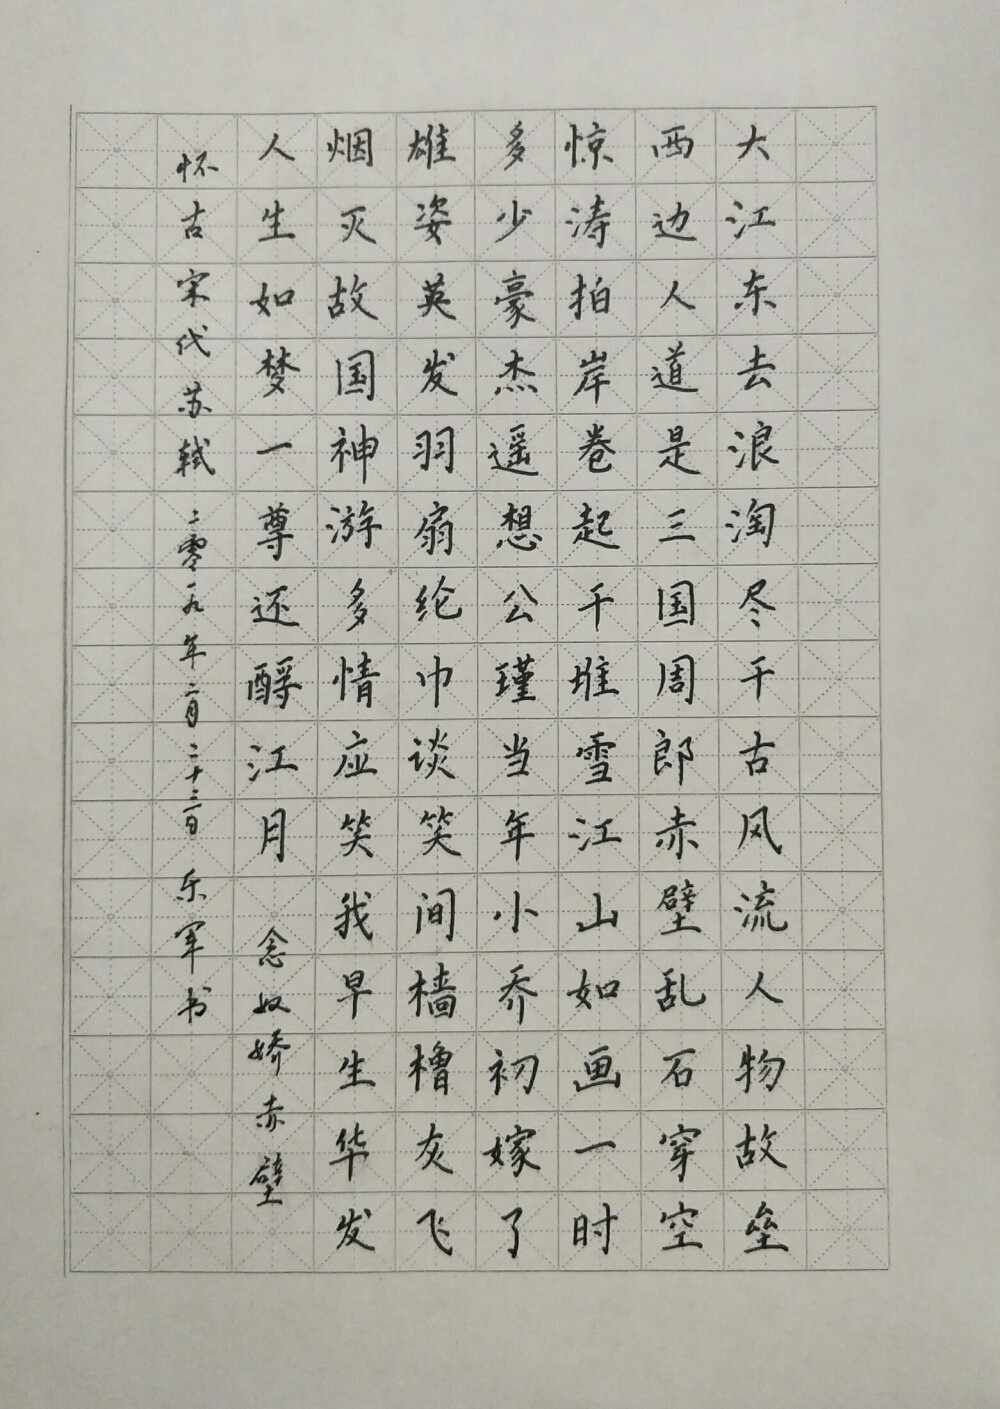 大江东去浪淘尽千古风流人物故垒
西边人道是三国周郎赤壁乱石穿空
惊涛拍岸卷起千堆雪江山如画一时
多少豪杰遥想公瑾当年小乔初嫁了
雄姿英发羽扇纶巾谈笑间樯橹灰飞
烟灭故国神游多情应笑我早生华发
人生如梦一尊还酹江月 念奴娇赤壁
怀古 宋代 苏轼 二零一九年二月二十三日 乐军书